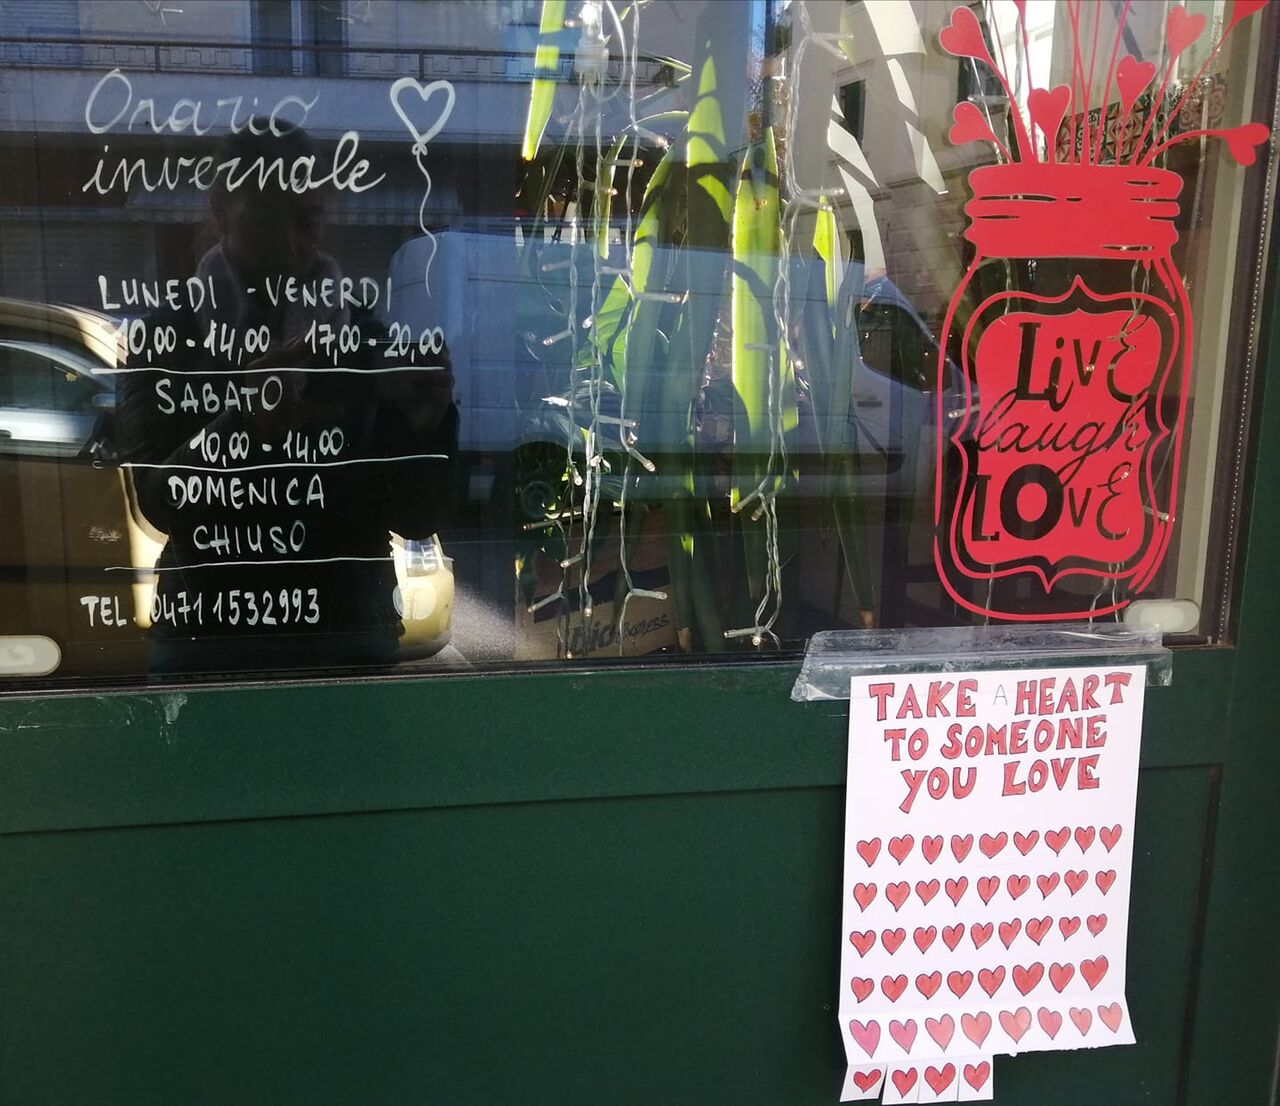 Orario
invernale
LUNEDI - VENERDI
10,00 - 14,00 17,00 - 20,00
SABATO
10,00 - 14,00
DOMENICA
CHIUSO
TEL. 0471 1532993
LivE
laugh
LOvE
express
TAKE A HEART
TO SOMEONE
YOU LOVE